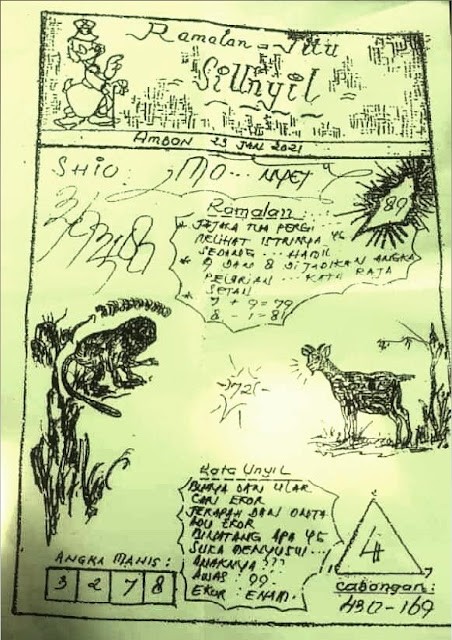 Ramalan - Jitu
SiUnyil
AMBON 23 JAN 2021
SHIO: MO... NYET
89
Ramalan
* JEJAKA TUA PERGI
MELIHAT ISTRINYA YG
SEDANG... HAMIL
* 9 DAN 8 DIJADIKAN ANGKA
PELARIAN... KATA RAJA
* SETAN
* 7 + 9 = 79
8 - 1 = 81
72
Kata UNYIL
BUAYA DAN ULAR
CARI EKOR
JERAPAH DAN ONTA
ADU EKOR
BINATANG APA YG
SUKA MENYUSUI...
ANAKNYA ???
AWAS: 99.
EKOR: ENAM.
4
ANGKA MANIS:
3 2 7 8
Cabangan:
430-169